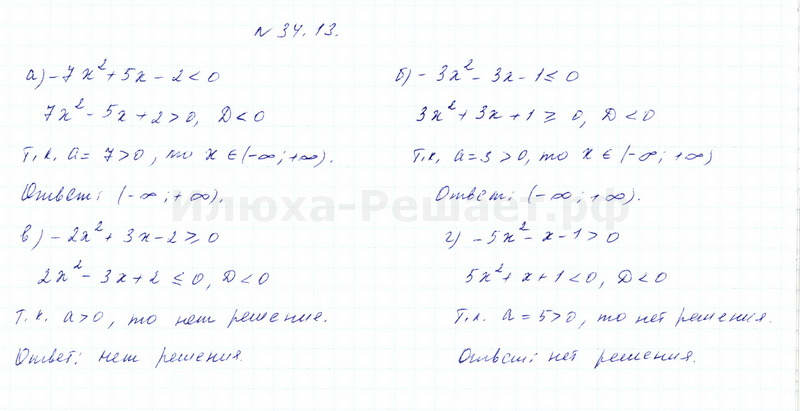 N 34.13.
а) -7x² + 5x - 2 < 0
7x² - 5x + 2 > 0, D < 0
Т.к. a = 7 > 0, то x ∈ (-∞; +∞).
Ответ: (-∞; +∞).
б) - 3x² - 3x - 1 ≤ 0
3x² + 3x + 1 ≥ 0, D < 0
Т.к. a = 3 > 0, то x ∈ (-∞; +∞)
Ответ: (-∞; +∞).
Илюха-Решает.рф
в) - 2x² + 3x - 2 ≥ 0
2x² - 3x + 2 ≤ 0, D < 0
Т.к. a > 0, то нет решения.
Ответ: нет решения.
г) - 5x² - x - 1 > 0
5x² + x + 1 < 0, D < 0
Т.к. a = 5 > 0, то нет решения.
Ответ: нет решения.